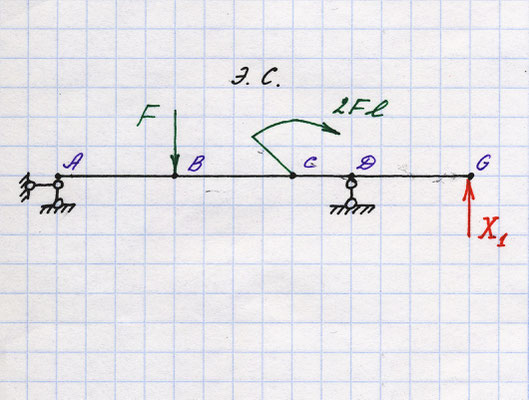 Э. С.
F
2Fl
A
B
C
D
G
X₁